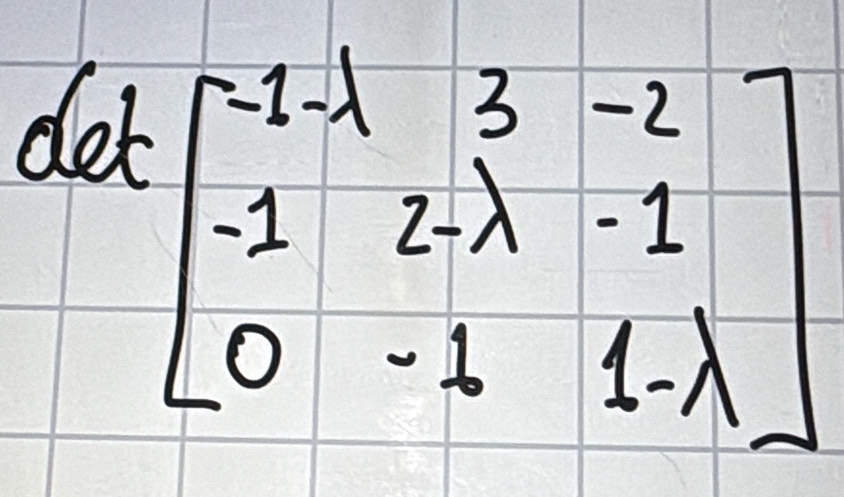 det [ -1-λ 3 -2
-1 2-λ -1
0 -1 1-λ ]